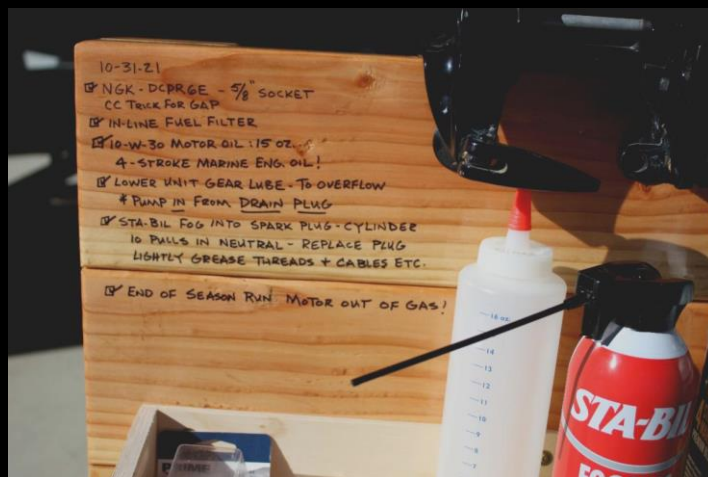 10-31-21
☑ NGK - DCPR6E - 5/8" SOCKET
CC TRICK FOR GAP
☑ IN-LINE FUEL FILTER
☑ 10-W-30 MOTOR OIL : 15 OZ.
4-STROKE MARINE ENG. OIL!
☑ LOWER UNIT GEAR LUBE - TO OVERFLOW
& PUMP IN FROM DRAIN PLUG
☑ STA-BIL FOG INTO SPARK PLUG - CYLINDER
10 PULLS IN NEUTRAL - REPLACE PLUG
LIGHTLY GREASE THREADS + CABLES ETC.
☑ END OF SEASON RUN MOTOR OUT OF GAS!
16 oz.
14
13
12
11
10
9
8
7
STA-BIL
PRIME